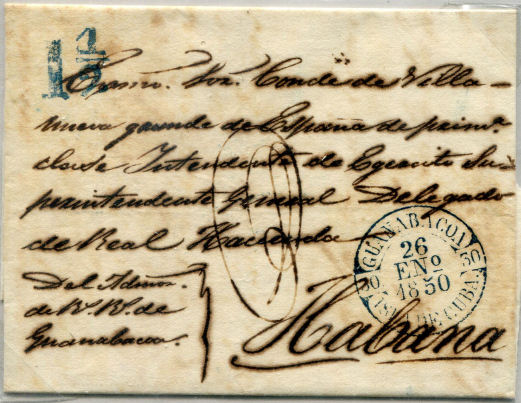 1½
Exmo. Sor. Conde de Villa-
nueva grande de España de primª
clase Intendente de Egercito Su-
perintendente General Delegado
de Real Hacienda
Del Admor.
de R. R. de
Guanabacoa.
Habana
GUANABACOA
30 30
26
ENº
1850
ISLA DE CUBA